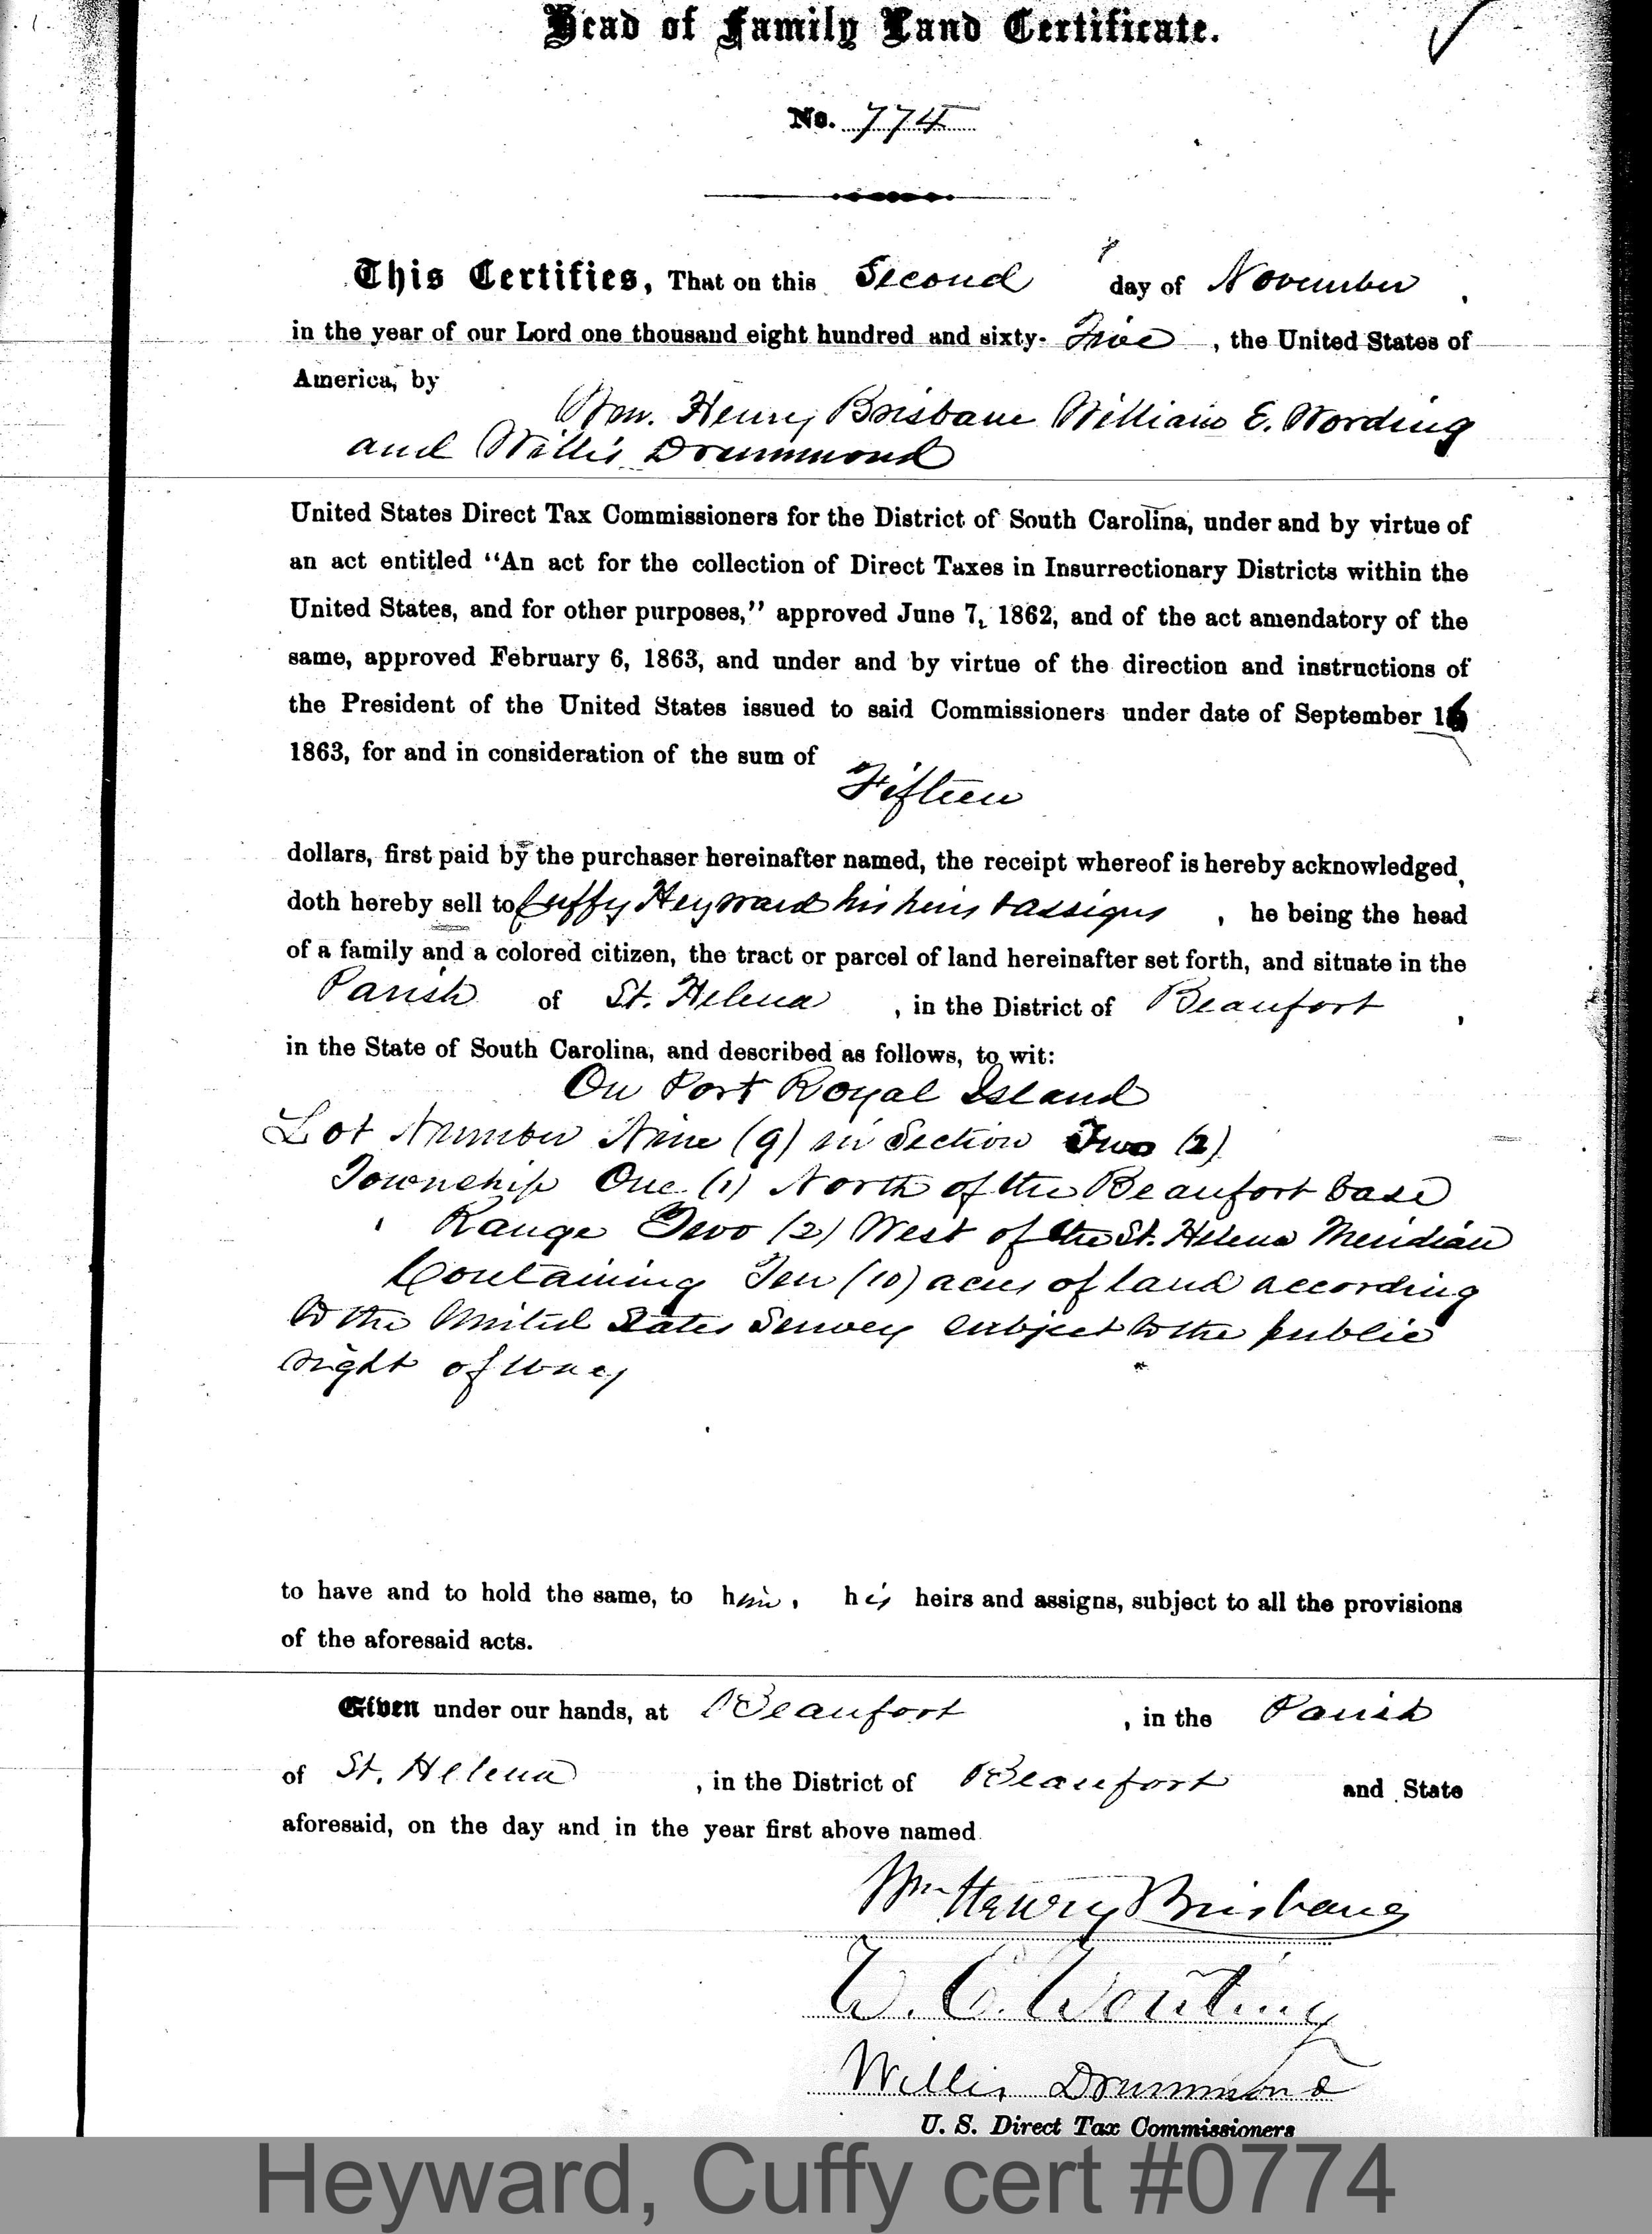 Head of Family Land Certificate.
No. 774
This Certifies, That on this Second day of November,
in the year of our Lord one thousand eight hundred and sixty-Five, the United States of
America, by
Wm. Henry Brisbane William E. Wording
and Willis Drummond
United States Direct Tax Commissioners for the District of South Carolina, under and by virtue of
an act entitled "An act for the collection of Direct Taxes in Insurrectionary Districts within the
United States, and for other purposes," approved June 7, 1862, and of the act amendatory of the
same, approved February 6, 1863, and under and by virtue of the direction and instructions of
the President of the United States issued to said Commissioners under date of September 16
1863, for and in consideration of the sum of
Fifteen
dollars, first paid by the purchaser hereinafter named, the receipt whereof is hereby acknowledged,
doth hereby sell to Cuffy Heyward his heirs & assigns, he being the head
of a family and a colored citizen, the tract or parcel of land hereinafter set forth, and situate in the
Parish of St. Helena, in the District of Beaufort,
in the State of South Carolina, and described as follows, to wit:
On Port Royal Island
Lot Number Nine (9) in Section Two (2)
Township One (1) North of the Beaufort base
Range Two (2) West of the St. Helena Meridian
Containing Ten (10) acres of land according
to the United States Survey subject to the public
right of way
to have and to hold the same, to him, his heirs and assigns, subject to all the provisions
of the aforesaid acts.
Given under our hands, at Beaufort, in the Parish
of St. Helena, in the District of Beaufort and State
aforesaid, on the day and in the year first above named.
Wm Henry Brisbane
W. E. Wording
Willis Drummond
U. S. Direct Tax Commissioners
Heyward, Cuffy cert #0774